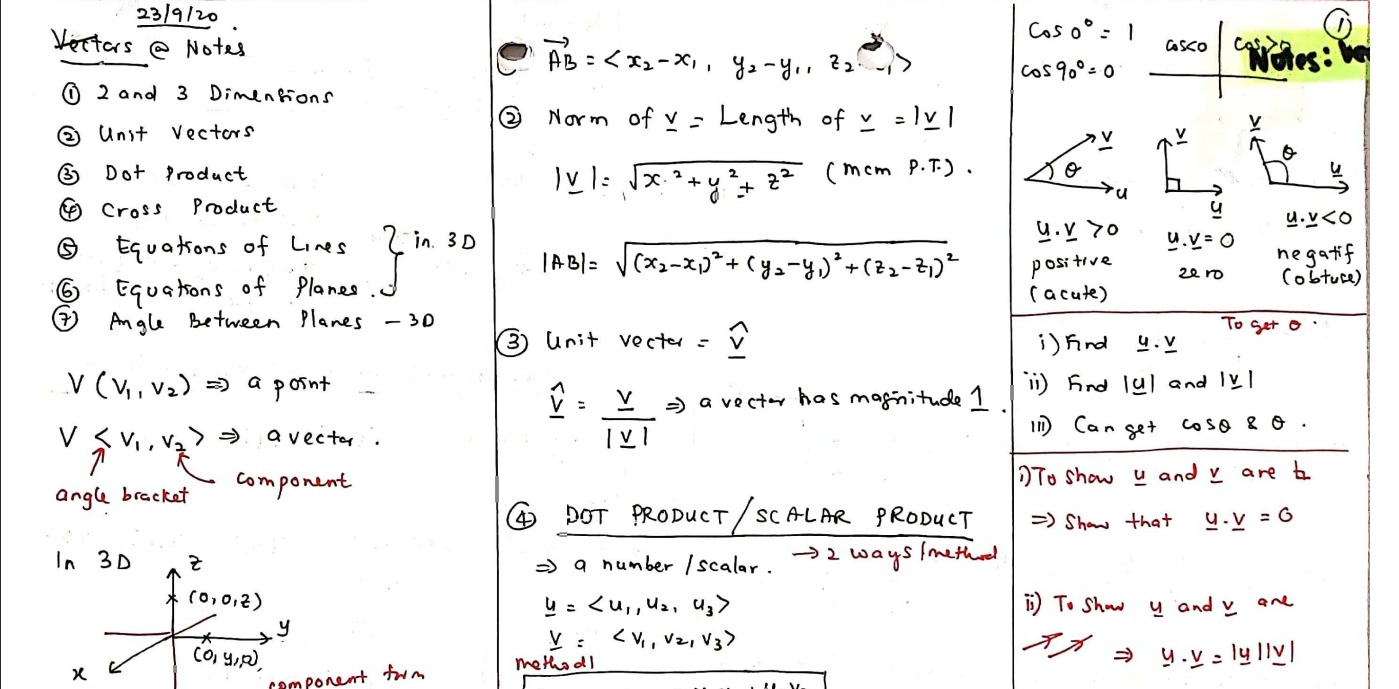 23/9/20
Vectors @ Notes
① 2 and 3 Dimensions
② Unit Vectors
③ Dot Product
④ Cross Product
⑤ Equations of Lines } in 3D
⑥ Equations of Planes
⑦ Angle Between Planes - 3D
V (V₁, V₂) ⇒ a point
V < V₁, V₂ > ⇒ a vector.
angle bracket component
In 3D
z
(0,0,z)
y
(0,y,0)
x
component form
AB = < x₂-x₁, y₂-y₁, z₂ >
② Norm of v = Length of v = |v|
|v| = √x² + y² + z² (mcm P.T.).
|AB| = √(x₂-x₁)² + (y₂-y₁)² + (z₂-z₁)²
③ Unit vector = v̂
v̂ = v / |v| ⇒ a vector has magnitude 1.
④ DOT PRODUCT/SCALAR PRODUCT
⇒ a number/scalar. → 2 ways/method
u = <u₁, u₂, u₃>
v = <v₁, v₂, v₃>
method 1
①
cos 0° = 1
cos<0
cos>0
Notes:
cos 90° = 0
v θ u
v u
v θ u
u.v > 0
positive
(acute)
u.v = 0
zero
u.v < 0
negatif
(obtuse)
To get θ.
i) Find u.v
ii) Find |u| and |v|
iii) Can get cosθ & θ.
i) To show u and v are ⊥
⇒ Show that u.v = 0
ii) To show u and v are
⇒ u.v = |u||v|